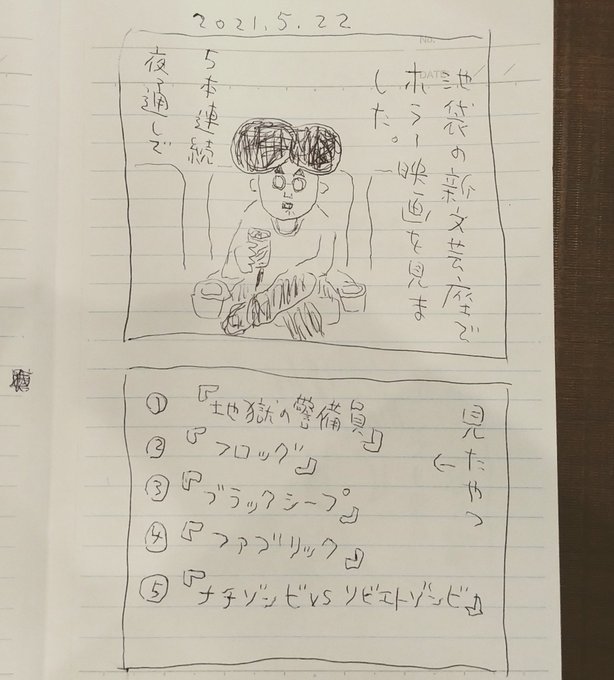 2021.5.22
No.
DATE
池袋の新文芸座で
ホラー映画を見ま
した。
5本連続
夜通しで
見たやつ
↓
①『地獄の警備員』
②『フロッグ』
③『ブラックシープ』
④『ファブリック』
⑤『ナチゾンビVSソビエトゾンビ』